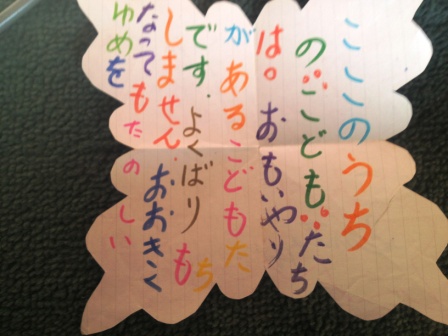 ここのうち
のこどもたち
は。おもいやり
があるこどもたち
です.よくばりも
しません.おおきく
なってもたのしい
ゆめを